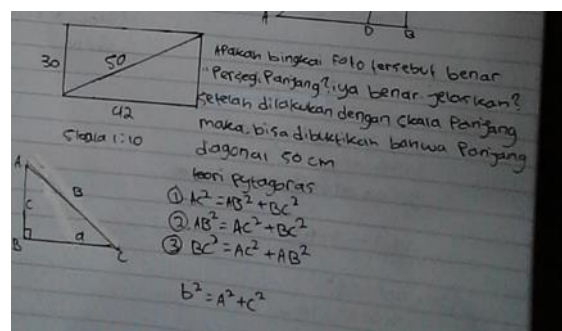 A D B
30 50
42
Skala 1:10
Apakah bingkai foto tersebut benar
"Persegi Panjang? iya benar. jelaskan?
setelah dilakukan dengan skala Panjang
maka, bisa dibuktikan bahwa Panjang
dagonal 50 cm
teori pytagoras
① AC² = AB² + BC²
② AB² = AC² + BC²
③ BC² = AC² + AB²
b² = A² + C²
A
B
c
B a C